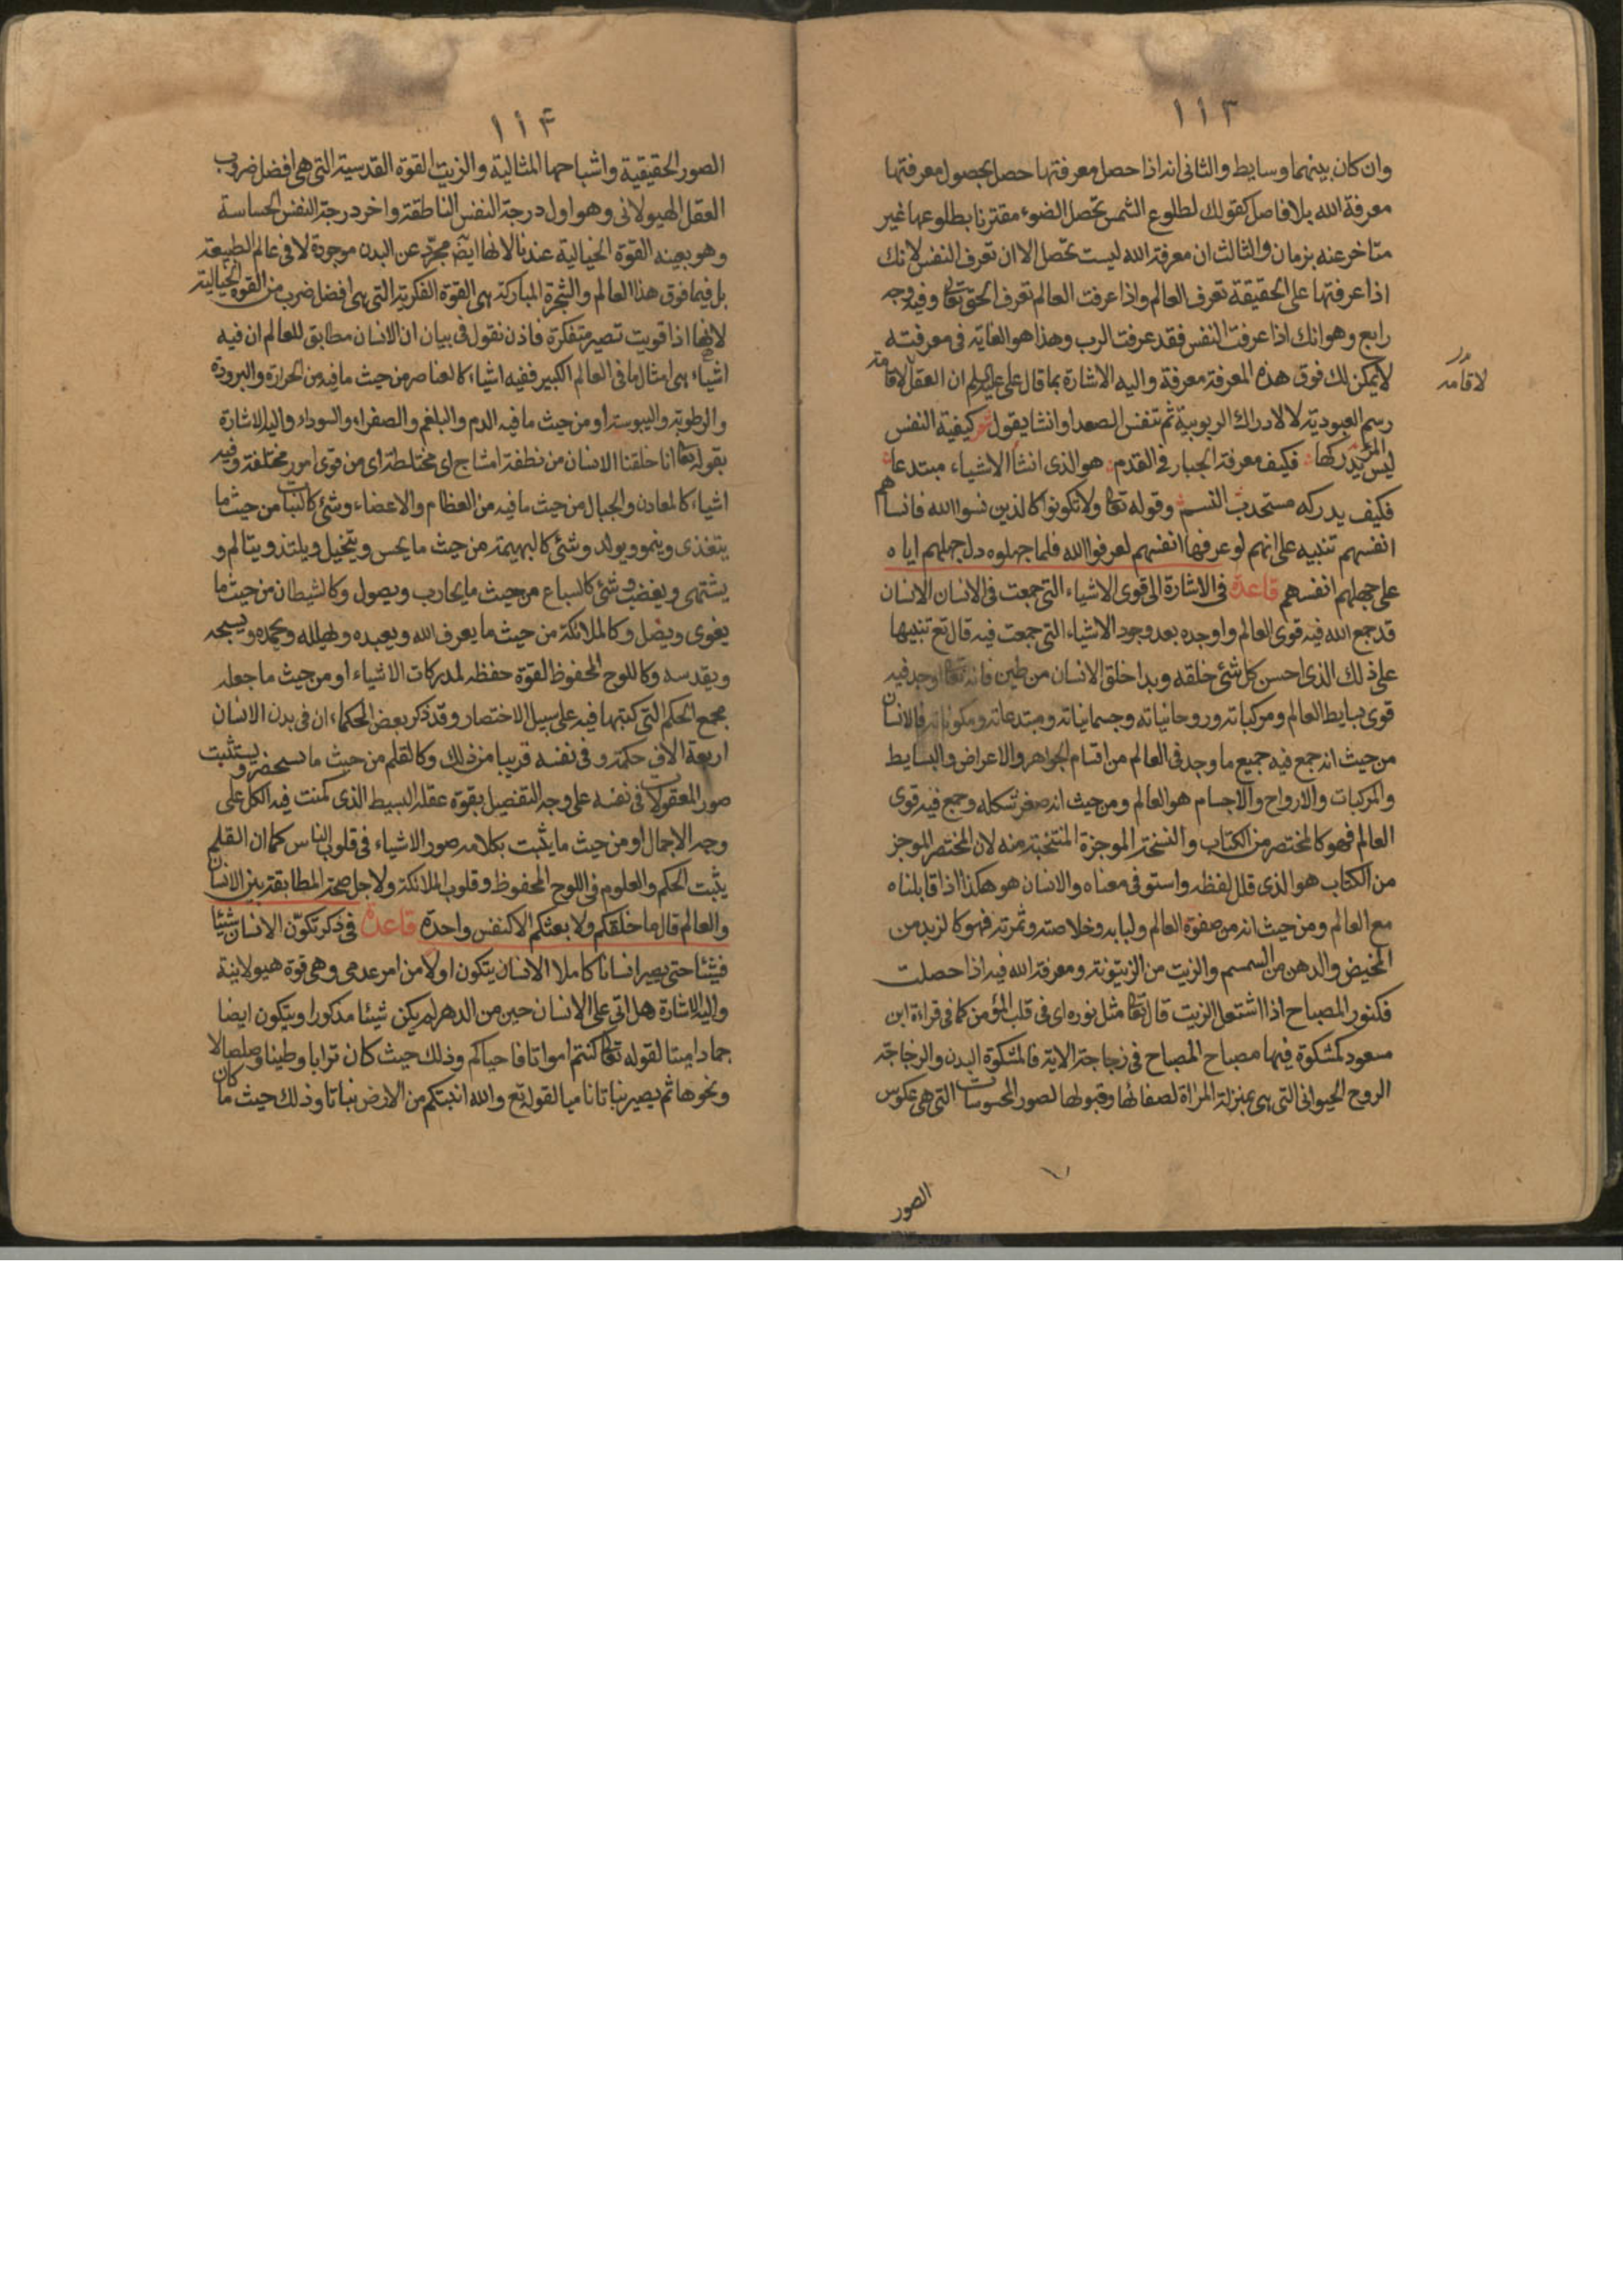 ١١٣
وان كان بينهما وسايط والثانى انه اذا حصل معرفتها حصل بحصول معرفتها
معرفة الله بلا فاصل كقولك لطلوع الشمس تحصل الضوء مقترنا بطلوعها غير
متاخر عنه بزمان والثالث ان معرفة الله ليست تحصل الا ان تعرف النفس لانك
اذا عرفتها على الحقيقة تعرف العالم واذا عرفت العالم تعرف الحق تعالى وفيه وجه
رابع وهو انك اذا عرفت النفس فقد عرفت الرب وهذا هو الغاية فى معرفته
لا يمكن لك فوق هذه المعرفة معرفة واليه الاشارة بما قال على عليه السلم ان العقل لاقامة
لاقامة
رسم العبودية لا لادراك الربوبية ثم تنفس الصعدا وانشا يقول شعر كيفية النفس
ليس المرء يدركها فكيف معرفة الجبار فى القدم هو الذى انشأ الاشياء مبتدعا
فكيف يدركه مستحدث النسم وقوله تعالى ولا تكونوا كالذين نسوا الله فانساهم
انفسهم تنبيه على انهم لو عرفوا انفسهم لعرفوا الله فلما جهلوه دل جهلهم اياه
على جهلهم انفسهم قاعدة فى الاشارة الى قوى الاشياء التى جمعت فى الانسان الانسان
قد جمع الله فيه قوى العالم واوجده بعد وجود الاشياء التى جمعت فيه قال تع تنبيها
على ذلك الذى احسن كل شئ خلقه وبدا خلق الانسان من طين فانه تعالى اوجد فيه
قوى بسايط العالم ومركباته وروحانياته وجسمانياته ومبتدعاته ومكوناته فالانسان
من حيث انه جمع فيه جميع ما وجد فى العالم من اقسام الجواهر والاعراض والبسايط
والمركبات والارواح والاجسام هو العالم ومن حيث انه صغر شكله وجمع فيه قوى
العالم فهو كالمختصر من الكتاب والنسخة الموجزة المنتخبة منه لان المختصر الموجز
من الكتاب هو الذى قلل لفظه واستوفى معناه والانسان هو هكذا اذا قابلناه
مع العالم ومن حيث انه من صفوة العالم ولبابه وخلاصته وثمرته فهو كالزبد من
المخيض والدهن من السمسم والزيت من الزيتونة ومعرفة الله فيه اذا حصلت
فكنور المصباح اذا اشتعل الزيت قال تعالى مثل نوره اى فى قلب المؤمن كما فى قراءة ابن
مسعود كمشكوة فيها مصباح المصباح فى زجاجة الاية فالمشكوة البدن والزجاجة
الروح الحيوانى التى هى بمنزلة المراة لصفائها وقبولها لصور المحسوسات التى هى عكوس
الصور
١١٤
الصور الحقيقية واشباحها المثالية والزيت القوة القدسية التى هى افضل ضروب
العقل الهيولانى وهو اول درجة النفس الناطقة واخر درجة النفس الحساسة
وهو بعينه القوة الخيالية عندنا لانها ايضا مجرد عن البدن موجودة لا فى عالم الطبيعة
بل فيما فوق هذا العالم والشجرة المباركة هى القوة الفكرية التى هى افضل ضرب من القوة الخيالية
لانها اذا قويت تصير متفكرة فاذن نقول فى بيان ان الانسان مطابق للعالم ان فيه
اشياء هى امثال ما فى العالم الكبير ففيه اشياء كالعناصر من حيث ما فيه من الحرارة والبرودة
والرطوبة واليبوسة او من حيث ما فيه الدم والبلغم والصفراء والسوداء واليه الاشارة
بقوله تعالى انا خلقنا الانسان من نطفة امشاج اى مختلطة اى من قوى امور مختلفة وفيه
اشياء كالمعادن والجبال من حيث ما فيه من العظام والاعضاء وشئ كالنبات من حيث ما
يتغذى وينمو ويولد وشئ كالبهيمة من حيث ما يحس ويتخيل ويلتذ ويتالم و
يشتهى ويغضب وشئ كالسباع من حيث ما يحارب ويصول وكالشيطان من حيث ما
يغوى ويضل وكالملائكة من حيث ما يعرف الله ويعبده ويهلله ويحمده ويسبحه
ويقدسه وكاللوح المحفوظ القوة حفظه لمدركات الاشياء او من حيث ما جعله
مجمع الحكم التى كتبها فيه على سبيل الاختصار وقد ذكر بعض الحكماء ان فى بدن الانسان
اربعة الاف حكمة وفى نفسه قريبا من ذلك وكالقلم من حيث ما يستحضر ويستثبت
صور المعقولات فى نفسه على وجه التفصيل بقوة عقله البسيط الذى كمنت فيه الكل على
وجه الاجمال او من حيث ما يثبت بكلامه صور الاشياء فى قلوب الناس كما ان القلم
يثبت الحكم والعلوم فى اللوح المحفوظ وقلوب الملائكة ولاجل صحة المطابقة بين الانسان
والعالم قال ما خلقكم ولا بعثكم الا كنفس واحدة قاعدة فى ذكر تكون الانسان شيئا
فشيئا حتى يصير انسانا كاملا الانسان يتكون اولا من امر عدمى وهى قوة هيولانية
واليه الاشارة هل اتى على الانسان حين من الدهر لم يكن شيئا مذكورا ويتكون ايضا
جمادا ميتا لقوله تعالى كنتم امواتا فاحياكم وذلك حيث كان ترابا وطينا وصلصالا
ونحوها ثم يصير نباتا ناميا لقوله تع والله انبتكم من الارض نباتا وذلك حيث ما كان